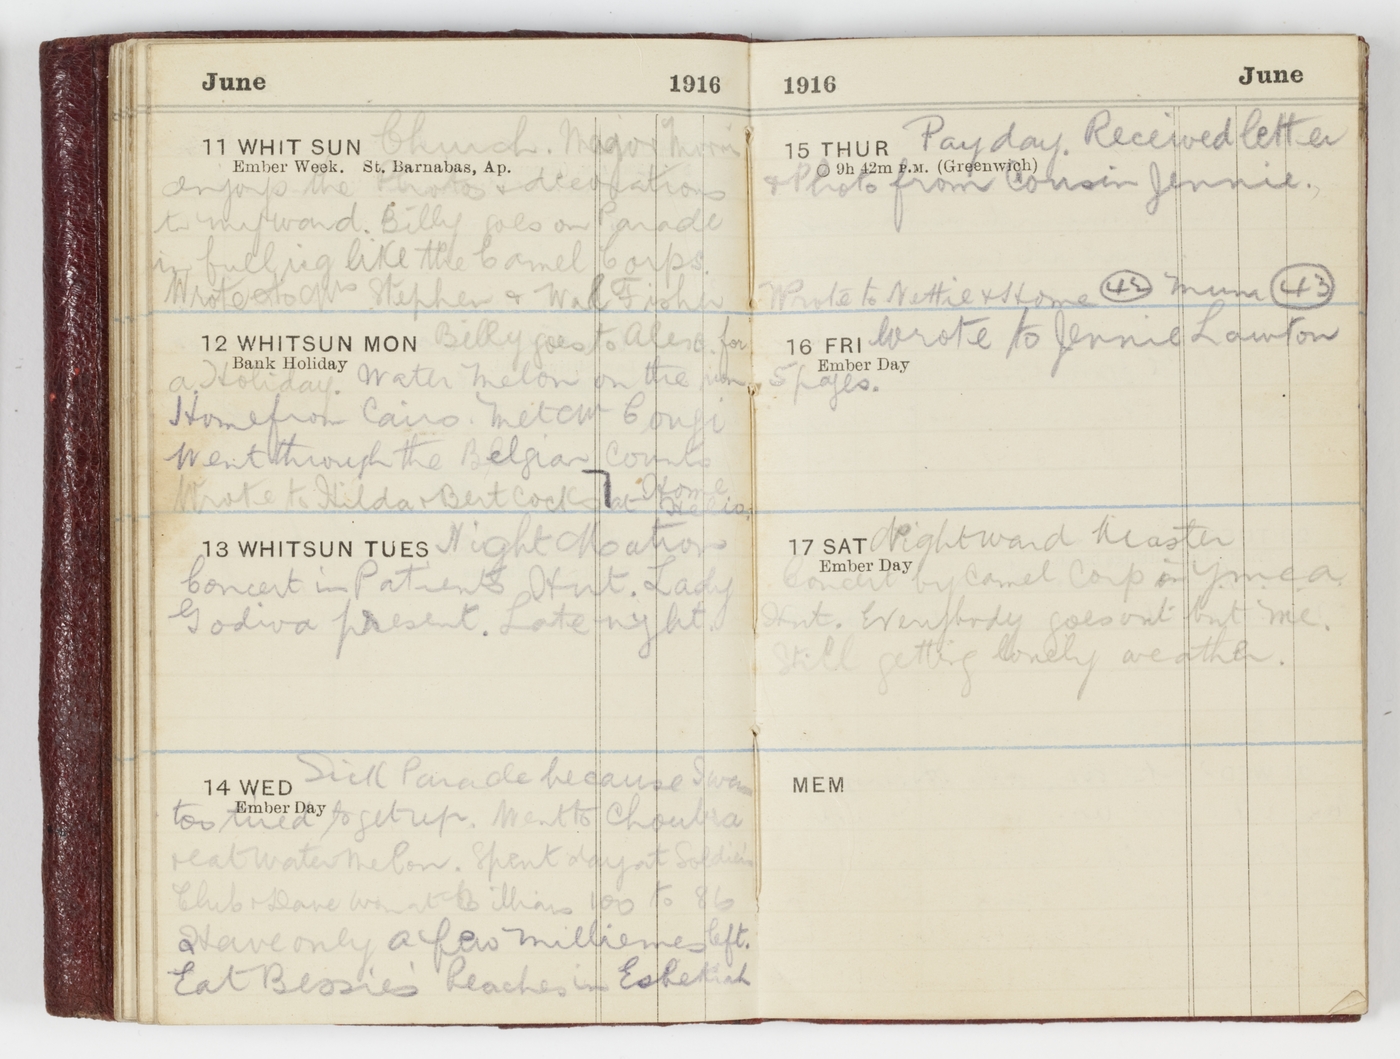 June 1916
11 WHIT SUN Church. Major Morris
Ember Week. St. Barnabas, Ap.
enjoys the Photos & decorations
in my ward. Billy goes on Parade
in full rig like the Camel Corps.
Wrote to Mrs Stephen & Wal Fisher
12 WHITSUN MON Billy goes to Alex. for
Bank Holiday
a Holiday. Water Melon on the
Home from Cairo. Met
Went through the Belgian Courts
Wrote to Hilda & Bert Cocks at Home
13 WHITSUN TUES Night
Concert in Patients Hut. Lady
Godiva present. Late night.
14 WED Sick Parade because I was
Ember Day
too tired to get up. Went to Choubra
& eat Water Melon. Spent day at Soldiers
Club & Dave won at Billiards 100 to 86
Have only a few milliemes left.
Eat Bessie's Peaches in Esbekiah
1916 June
15 THUR Pay day. Received letter
9h 42m P.M. (Greenwich)
& Photo from Cousin Jennie.
Wrote to Nettie & Home 42 Mum 43
16 FRI Wrote to Jennie Lawton
Ember Day
5 pages.
17 SAT Night ward Master
Ember Day
Concert by Camel Corp in Y.M.C.A.
Hut. Everybody goes out but me.
Still getting lovely weather.
MEM